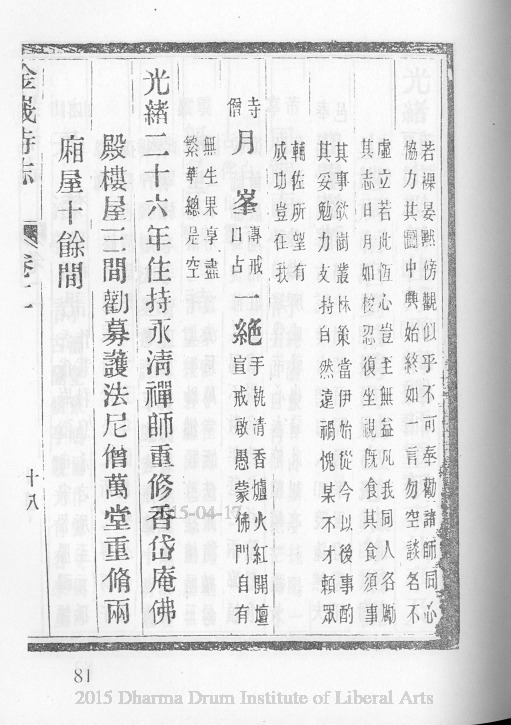 若裸晏黙傍觀似乎不可奉勸諸師同心
協力其圖中興始終如一言勿空談名不
虛立若此恆心豈至無益凡我同人各勵
其志日月如梭忍復坐視旣食其食須事
其事欲樹叢林策當伊始從今以後事酌
其妥勉力支持自然遠禍愧某不才賴眾
輔佐所望有
成功豈在我
寺僧月峯專戒口占一絕手執清香爐火紅開壇
宣戒啟愚蒙佛門自有
無生果享盡
繁華總是空
光緒二十六年住持永清禪師重修香岱庵佛
殿樓屋三間勸募護法尼僧萬堂重脩兩
廂屋十餘間
金峩寺志 卷二 十八
81
15-04-17
2015 Dharma Drum Institute of Liberal Arts